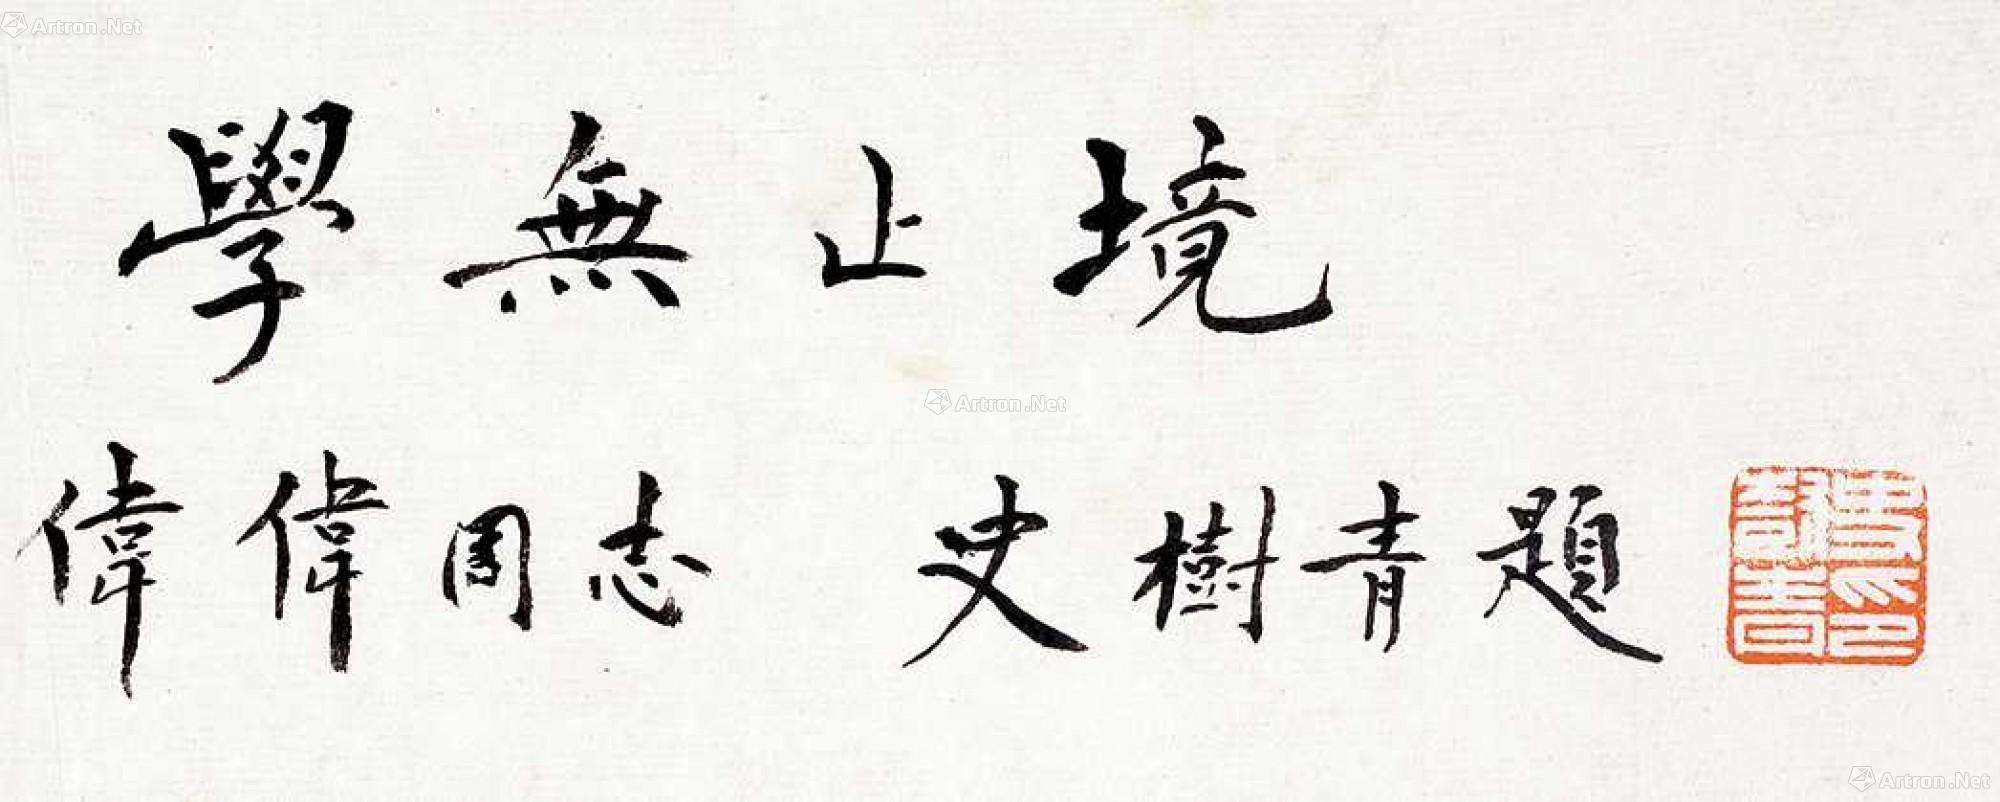 Artron.Net
學無止境
Artron.Net
偉偉同志 史樹青題
史樹青印
Artron.Net